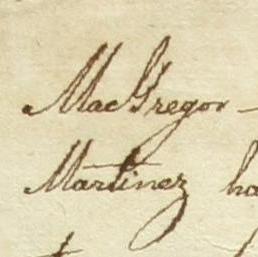 MacGregor -
Martinez ha